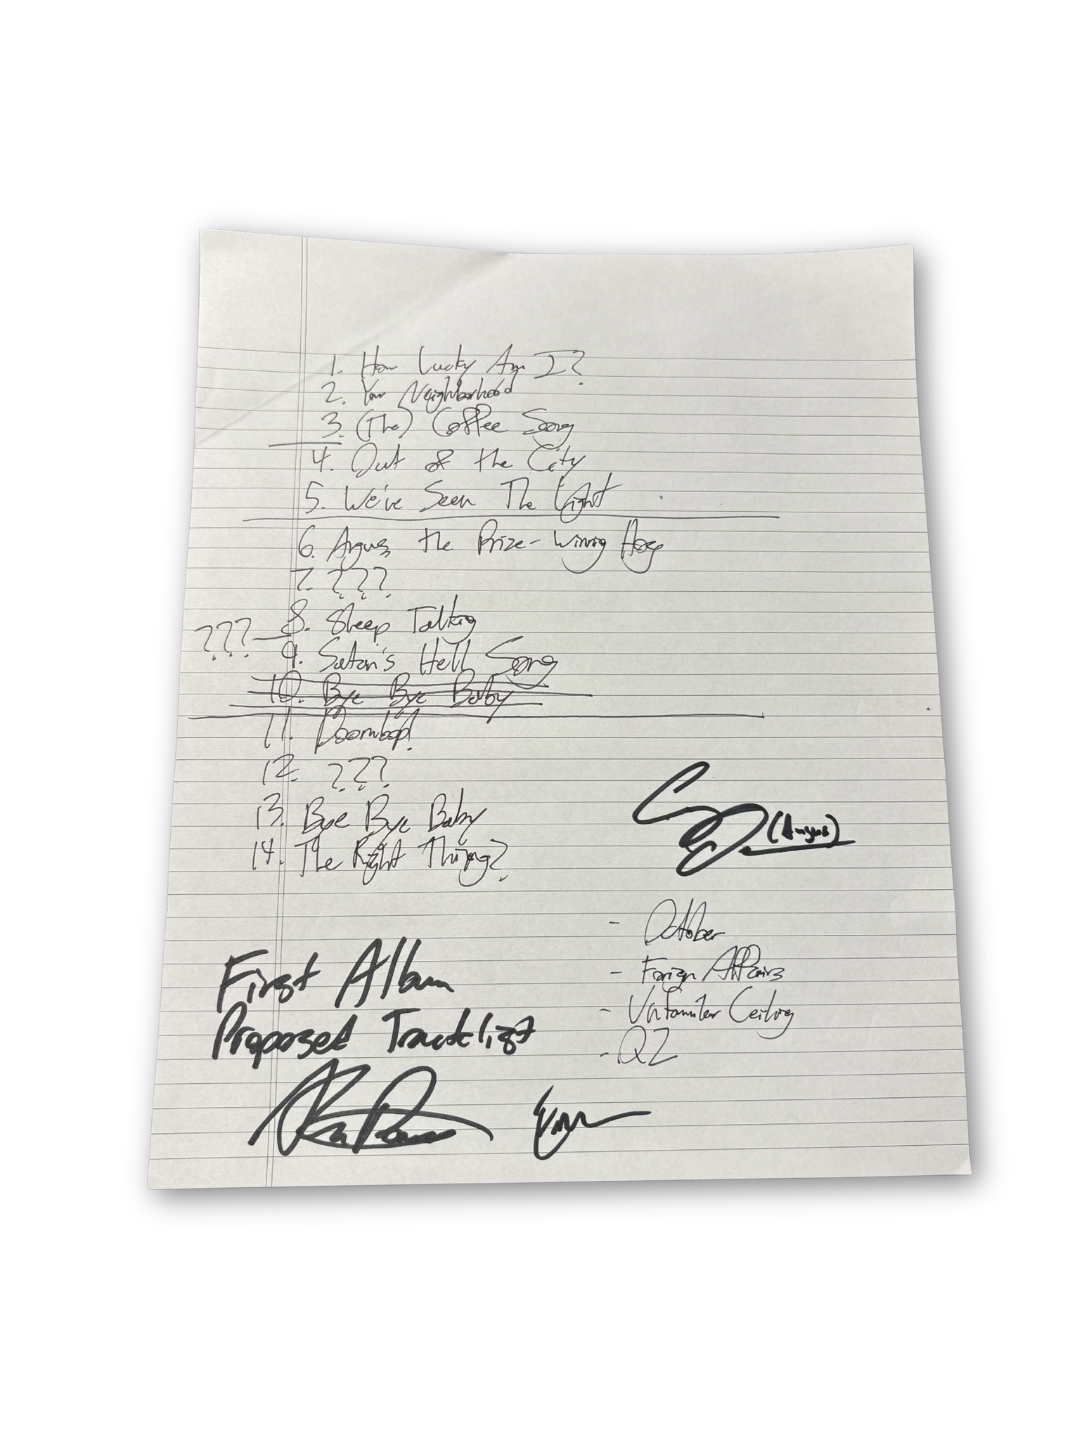 1. How Lucky Am I?
2. Your Neighborhood
3. (The) Coffee Song
4. Out of the City
5. We've Seen The Light
6. Angus, the Prize-Winning Hog
7. ???
8. Sleep Talking
???
9. Satan's Hell Song
10. Bye Bye Baby
11. Doombop!
12. ???
13. Bye Bye Baby
14. The Right Thing?
(Angus)
- October
- Foreign Affairs
- Unfamiliar Ceiling
- QZ
First Album
Proposed Tracklist